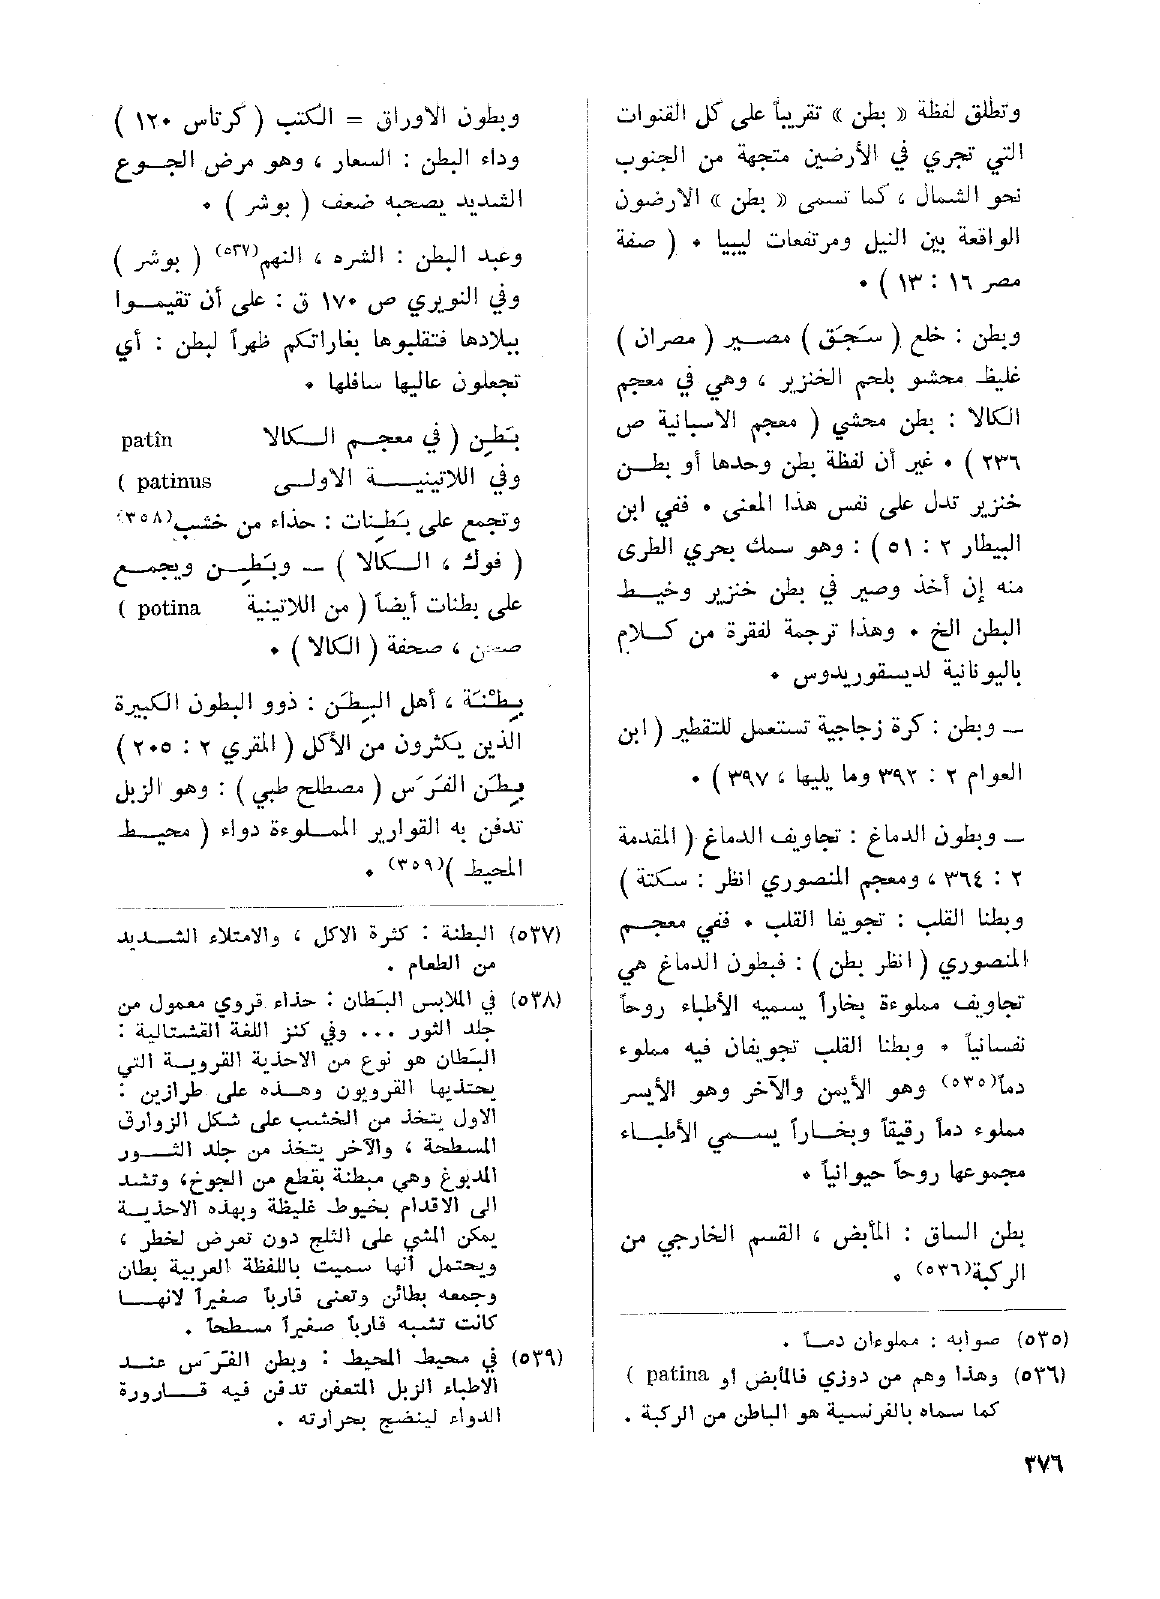 وتطلق لفظة « بطن » تقريباً على كل القنوات
التي تجري في الأرضين متجهة من الجنوب
نحو الشمال ، كما تسمى « بطن » الارضون
الواقعة بين النيل ومرتفعات ليبيا . ( صفة
مصر ١٦ : ١٣ ) .
وبطن : خلع ( سَجَق ) مصير ( مصران )
غليظ محشو بلحم الخنزير ، وهي في معجم
الكالا : بطن محشي ( معجم الاسبانية ص
٢٣٦ ) . غير أن لفظة بطن وحدها أو بطن
خنزير تدل على نفس هذا المعنى . ففي ابن
البيطار ٢ : ٥١ ) : وهو سمك بحري الطرى
منه إن أخذ وصير في بطن خنزير وخيط
البطن الخ . وهذا ترجمة لفقرة من كلام
باليونانية لديسقوريدوس .
— وبطن : كرة زجاجية تستعمل للتقطير ( ابن
العوام ٢ : ٣٩٢ وما يليها ، ٣٩٧ ) .
— وبطون الدماغ : تجاويف الدماغ ( المقدمة
٢ : ٣٦٤ ، ومعجم المنصوري انظر : سكتة )
وبطنا القلب : تجويفا القلب . ففي معجم
المنصوري ( انظر بطن ) : فبطون الدماغ هي
تجاويف مملوءة بخاراً يسميه الأطباء روحاً
نفسانياً . وبطنا القلب تجويفان فيه مملوء
دماً(٥٣٥) وهو الأيمن والآخر وهو الأيسر
مملوء دماً رقيقاً وبخاراً يسمي الأطباء
مجموعها روحاً حيوانياً .
بطن الساق : المأبض ، القسم الخارجي من
الركبة(٥٣٦) .
(٥٣٥) صوابه : مملوءان دماً .
(٥٣٦) وهذا وهم من دوزي فالمأبض او patina )
كما سماه بالفرنسية هو الباطن من الركبة .
وبطون الاوراق = الكتب ( كرتاس ١٢٠ )
وداء البطن : السعار ، وهو مرض الجوع
الشديد يصحبه ضعف ( بوشر ) .
وعبد البطن : الشره ، النهم(٥٣٧) ( بوشر )
وفي النويري ص ١٧٠ ق : على أن تقيموا
ببلادها فتقلبوها بغاراتكم ظهراً لبطن : أي
تجعلون عاليها سافلها .
بَطِن ( في معجم الكالا patîn
وفي اللاتينية الاولى patinus )
وتجمع على بَطِنات : حذاء من خشب(٣٥٨)
( فوك ، الكالا ) — وبَطِن ويجمع
على بطنات أيضاً ( من اللاتينية potina )
صحن ، صحفة ( الكالا ) .
بِطْنَة ، أهل البِطَن : ذوو البطون الكبيرة
الذين يكثرون من الأكل ( المقري ٢ : ٢٠٥ )
بِطَن الفَرَس ( مصطلح طبي ) : وهو الزبل
تدفن به القوارير المملوءة دواء ( محيط
المحيط )(٣٥٩) .
(٥٣٧) البطنة : كثرة الاكل ، والامتلاء الشديد
من الطعام .
(٥٣٨) في الملابس البَطان : حذاء قروي معمول من
جلد الثور ... وفي كنز اللغة القشتالية :
البَطان هو نوع من الاحذية القروية التي
يحتذيها القرويون وهذه على طرازين :
الاول يتخذ من الخشب على شكل الزوارق
المسطحة ، والآخر يتخذ من جلد الثور
المدبوغ وهي مبطنة بقطع من الجوخ، وتشد
الى الاقدام بخيوط غليظة وبهذه الاحذية
يمكن المشي على الثلج دون تعرض لخطر ،
ويحتمل أنها سميت باللفظة العربية بطان
وجمعه بطائن وتعنى قارباً صغيراً لانها
كانت تشبه قارباً صغيراً مسطحاً .
(٥٣٩) في محيط المحيط : وبطن الفَرَس عند
الاطباء الزبل المتعفن تدفن فيه قارورة
الدواء لينضج بحرارته .
٣٧٦